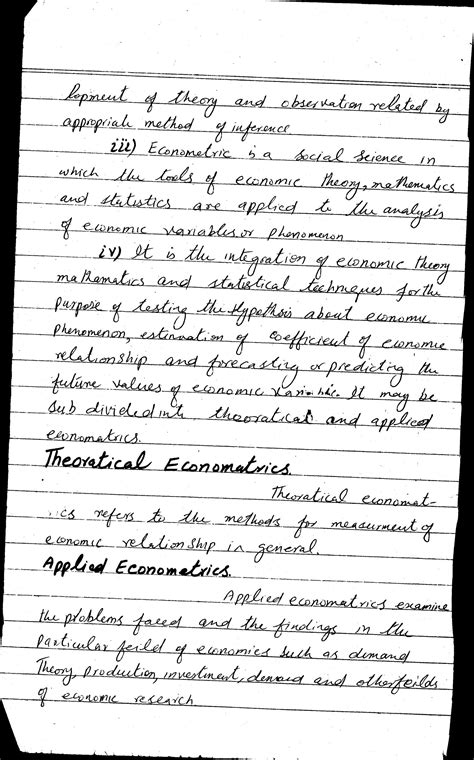 lopment of theory and observation related by
appropriate method of inference
iii) Econometric is a social science in
which the tools of economic theory, mathematics
and statistics are applied to the analysis
of economic variables or phenomenon
iv) It is the integration of economic theory
mathematics and statistical techneques for the
purpose of testing the Hypothsis about economic
phenomenon, estimation of coefficient of economic
relationship and forecasting or predicting the
future values of economic variable. It may be
sub divided into theoratical and applied
econometrics.
Theoratical Econometrics.
Theoratical economat-
ics refers to the methods for measurment of
economic relationship in general.
Applied Econometrics.
Applied econometrics examine
the problems faced and the findings in the
particular feild of economics such as demand
Theory, production, investment, demand and other feilds
of economic research